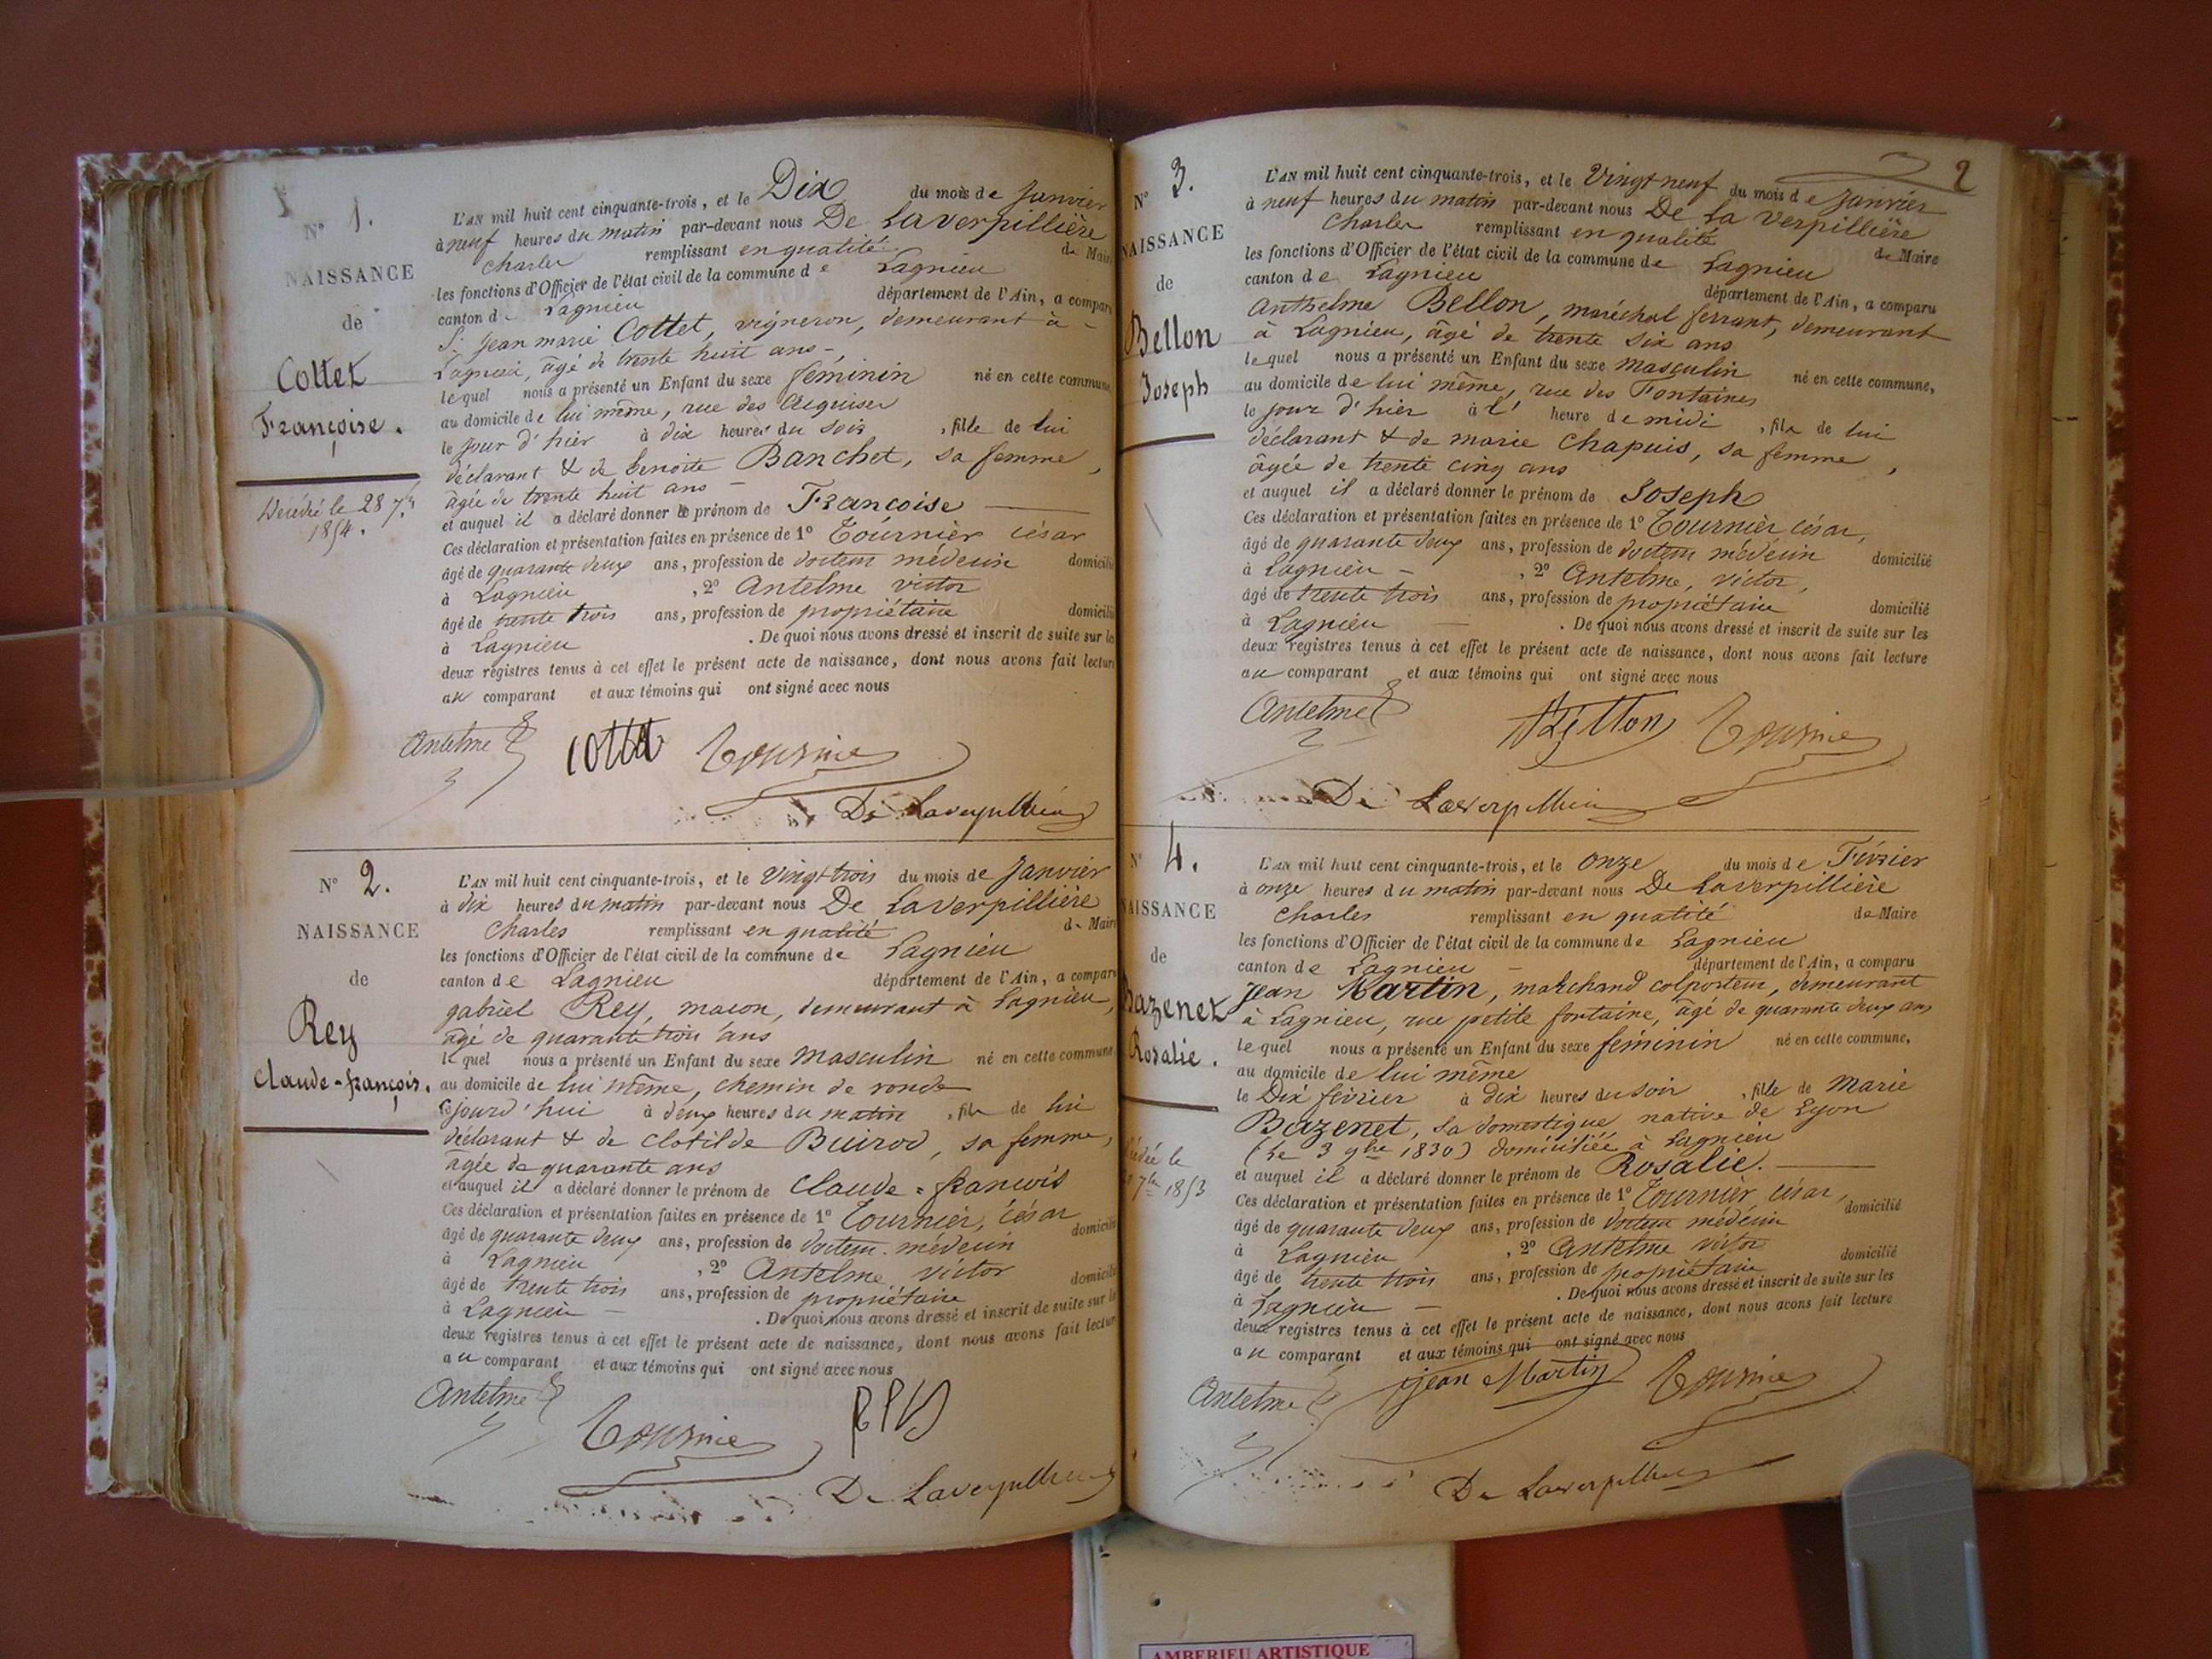 N° 1.
NAISSANCE
de
Cottet
Françoise.
Décédé le 28 7bre
1854.
L'AN mil huit cent cinquante-trois, et le Dix du mois de Janvier
à neuf heures du matin par-devant nous De Laverpillière
Charles remplissant en qualité de Maire
les fonctions d'Officier de l'état civil de la commune de Lagnieu
canton de Lagnieu département de l'Ain, a comparu
Sr Jean marie Cottet, vigneron, demeurant à
Lagnieu, âgé de trente huit ans
lequel nous a présenté un Enfant du sexe féminin né en cette commune,
au domicile de lui même, rue des
le jour d'hier à dix heures du soir, fille de lui
déclarant & de benoite Banchet, sa femme,
âgée de trente huit ans
et auquel il a déclaré donner le prénom de Françoise
Ces déclaration et présentation faites en présence de 1° Tournier César
âgé de quarante deux ans, profession de docteur médecin domicilié
à Lagnieu, 2° Antelme victor
âgé de trente trois ans, profession de propriétaire domicilié
à Lagnieu. De quoi nous avons dressé et inscrit de suite sur les
deux registres tenus à cet effet le présent acte de naissance, dont nous avons fait lecture
au comparant et aux témoins qui ont signé avec nous
Antelme Cottet Tournier
De Laverpillière
N° 2.
NAISSANCE
de
Rey
Claude-françois.
L'AN mil huit cent cinquante-trois, et le Vingt trois du mois de Janvier
à dix heures du matin par-devant nous De Laverpillière
Charles remplissant en qualité de Maire
les fonctions d'Officier de l'état civil de la commune de Lagnieu
canton de Lagnieu département de l'Ain, a comparu
gabriel Rey, macon, demeurant à Lagnieu,
âgé de quarante trois ans
lequel nous a présenté un Enfant du sexe masculin né en cette commune,
au domicile de lui même, chemin de ronde
cejourd'hui à deux heures du matin, fils de lui
déclarant & de clotilde Buirod, sa femme,
âgée de quarante ans
et auquel il a déclaré donner le prénom de Claude=francois
Ces déclaration et présentation faites en présence de 1° Tournier, César
âgé de quarante deux ans, profession de docteur médecin domicilié
à Lagnieu, 2° Antelme, victor
âgé de trente trois ans, profession de propriétaire domicilié
à Lagnieu. De quoi nous avons dressé et inscrit de suite sur les
deux registres tenus à cet effet le présent acte de naissance, dont nous avons fait lecture
au comparant et aux témoins qui ont signé avec nous
Antelme Tournier rey
De Laverpillière
2
N° 3.
NAISSANCE
de
Bellon
Joseph
L'AN mil huit cent cinquante-trois, et le Vingt neuf du mois de Janvier
à neuf heures du matin par-devant nous De La Verpillière
Charles remplissant en qualité de Maire
les fonctions d'Officier de l'état civil de la commune de Lagnieu
canton de Lagnieu département de l'Ain, a comparu
Anthelme Bellon, maréchal ferrant, demeurant
à Lagnieu, âgé de trente six ans
lequel nous a présenté un Enfant du sexe masculin né en cette commune,
au domicile de lui même, rue des Fontaines
le jour d'hier à l' heure de midi, fils de lui
déclarant & de marie Chapuis, sa femme,
âgée de trente cinq ans
et auquel il a déclaré donner le prénom de Joseph
Ces déclaration et présentation faites en présence de 1° Tournier, César,
âgé de quarante deux ans, profession de docteur médecin domicilié
à Lagnieu, 2° Antelme, victor,
âgé de trente trois ans, profession de propriétaire domicilié
à Lagnieu. De quoi nous avons dressé et inscrit de suite sur les
deux registres tenus à cet effet le présent acte de naissance, dont nous avons fait lecture
au comparant et aux témoins qui ont signé avec nous
Antelme Bellon Tournier
De Laverpillière
N° 4.
NAISSANCE
de
Bazenet
Rosalie.
Décédée le
7bre 1853
L'AN mil huit cent cinquante-trois, et le onze du mois de Février
à onze heures du matin par-devant nous De Laverpillière
Charles remplissant en qualité de Maire
les fonctions d'Officier de l'état civil de la commune de Lagnieu
canton de Lagnieu département de l'Ain, a comparu
Jean Martin, marchand colporteur, demeurant
à Lagnieu, rue petite fontaine, âgé de quarante deux ans
lequel nous a présenté un Enfant du sexe féminin né en cette commune,
au domicile de lui même
le Dix février à dix heures du soir, fille de Marie
Bazenet, sa domestique, native de Lyon
(le 3 9bre 1830) domiciliée à Lagnieu
et auquel il a déclaré donner le prénom de Rosalie.
Ces déclaration et présentation faites en présence de 1° Tournier, César,
âgé de quarante deux ans, profession de docteur médecin domicilié
à Lagnieu, 2° Antelme victor
âgé de trente trois ans, profession de propriétaire domicilié
à Lagnieu. De quoi nous avons dressé et inscrit de suite sur les
deux registres tenus à cet effet le présent acte de naissance, dont nous avons fait lecture
au comparant et aux témoins qui ont signé avec nous
Antelme Jean Martin Tournier
De Laverpillière
AMBERIEU ARTISTIQUE